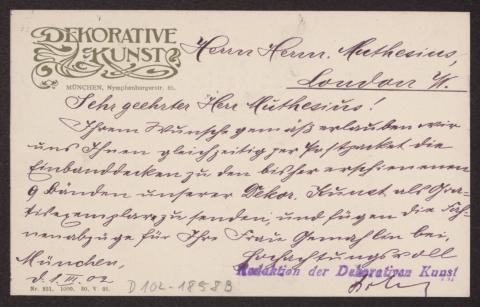 DEKORATIVE
KUNST
MÜNCHEN, Nymphenburgerstr. 86.
Herrn Herm. Muthesius,
London W.
Sehr geehrter Herr Muthesius!
Ihrem Wunsche gemäß erlauben wir
uns Ihnen gleichzeitig per Postpacket die
Einbanddecken zu den bisher erschienenen
9 Bänden unserer Dekor. Kunst als Gra-
tisexemplare zu senden und fügen die Fah-
nenabzüge für Ihre Frau Gemahlin bei.
Hochachtungsvoll
München,
Redaktion der Dekorativen Kunst
d. 1. III. 02
D 102-1858 B
Nr. 231. 1000. 30. V. 01.